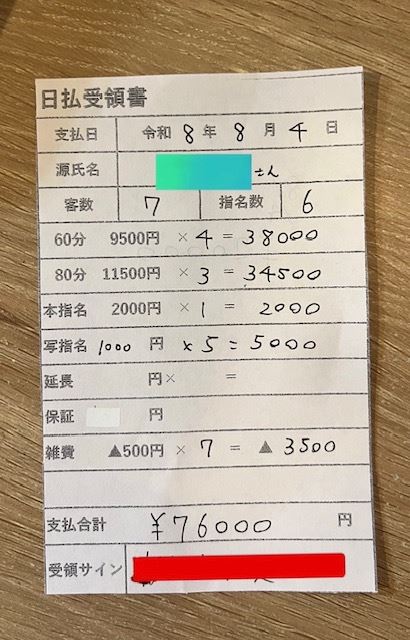 日払受領書
支払日 令和 8 年 8 月 4 日
源氏名 さん
客数 7 指名数 6
60分 9500円 × 4 = 38000
80分 11500円 × 3 = 34500
本指名 2000円 × 1 = 2000
写指名 1000 円 × 5 = 5000
延長 円× =
保証 円
雑費 ▲500円 × 7 = ▲ 3500
支払合計 ¥76000 円
受領サイン